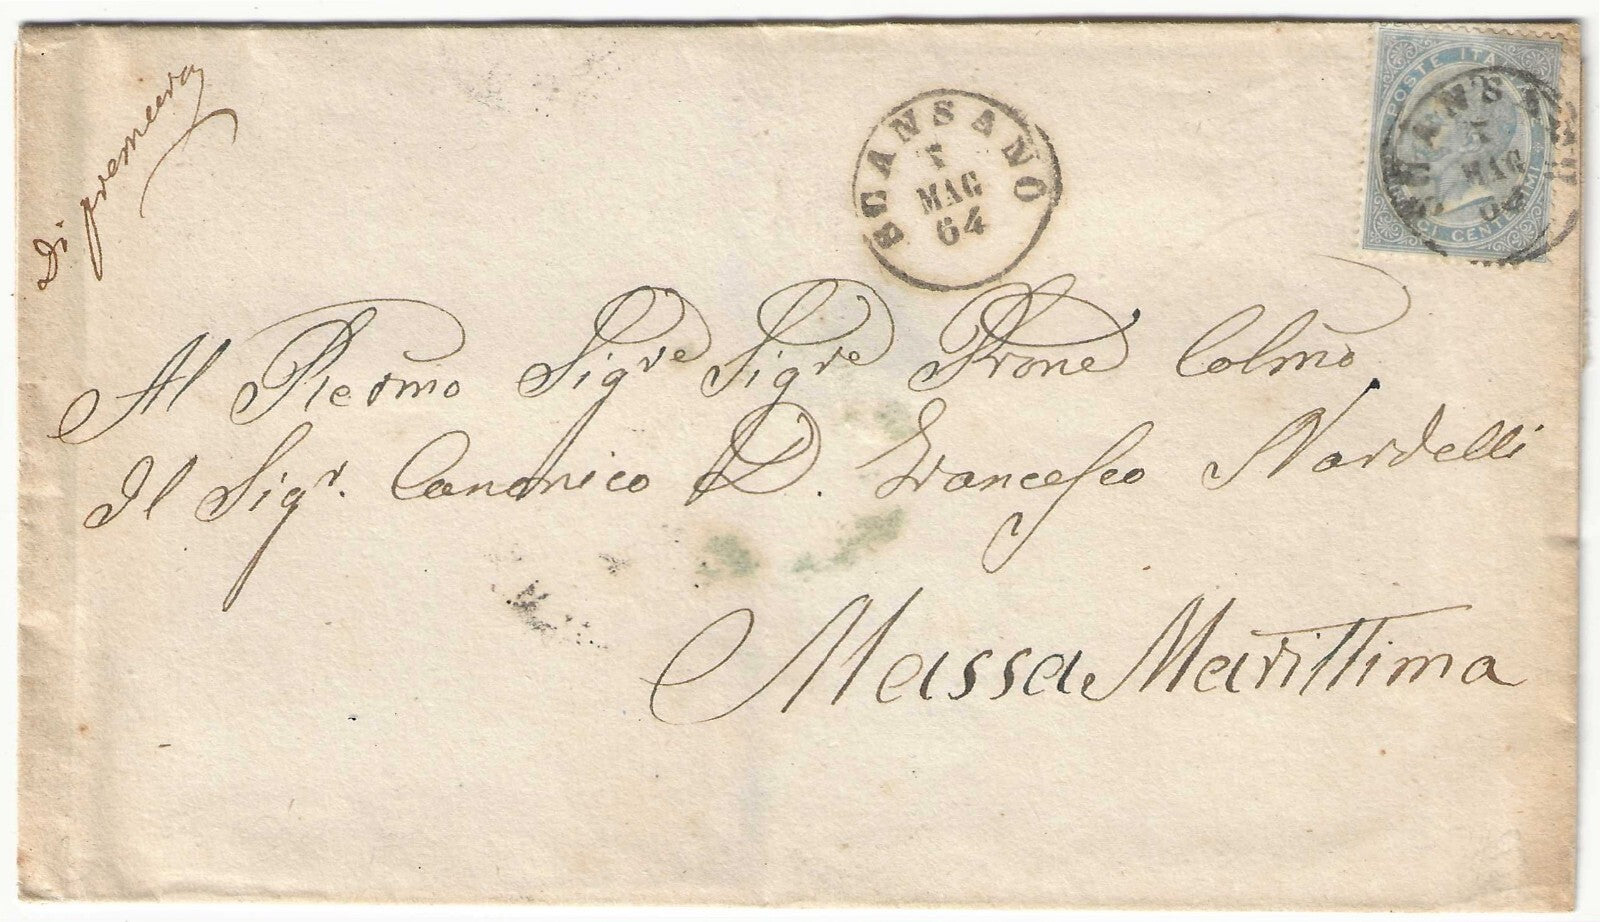 Di premura
SCANSANO
MAG
64
POSTE ITA
CI CENTESIMI
ANSA
MAG
Al Sig.re Sig.re Prone Colmo
Il Sigr. Canonico D. Francesco Nardelli
Massa Marittima